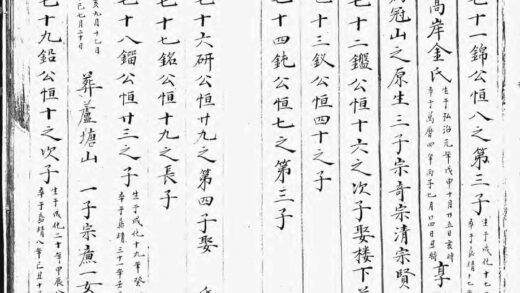 七十一錦公恒八之第三子 生于成化十七
高岸金氏 生于弘治元年戊申十月廿五日亥時 卒于萬曆四年丙子七月口四日丑時 享
冠山之原生三子宗奇宗清宗賢
七十二鑑公恒十六之次子娶楼下
七十三釵公恒四十之子
七十四鈍公恒七之第三子
七十六研公恒廿九之第四子娶
七十七銘公恒十九之長子
七十八錙公恒廿三之子 生于成化十九年癸 卒于嘉靖三十一年壬
亥九月十七日
七月二十日 葬蘆塘山 一子宗庶一女
七十九鉛公恒十之次子 生于成化二十年甲辰八 卒于嘉靖八年己丑十